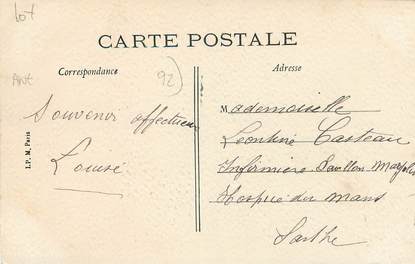 lot
CARTE POSTALE
Correspondance
Adresse
Ant
92)
Souvenir affectueux
Louise
Mademoiselle
Leontine Casteau
Infirmiere Pavillon
Hospice du Mans
Sarthe
I.P.M. Paris